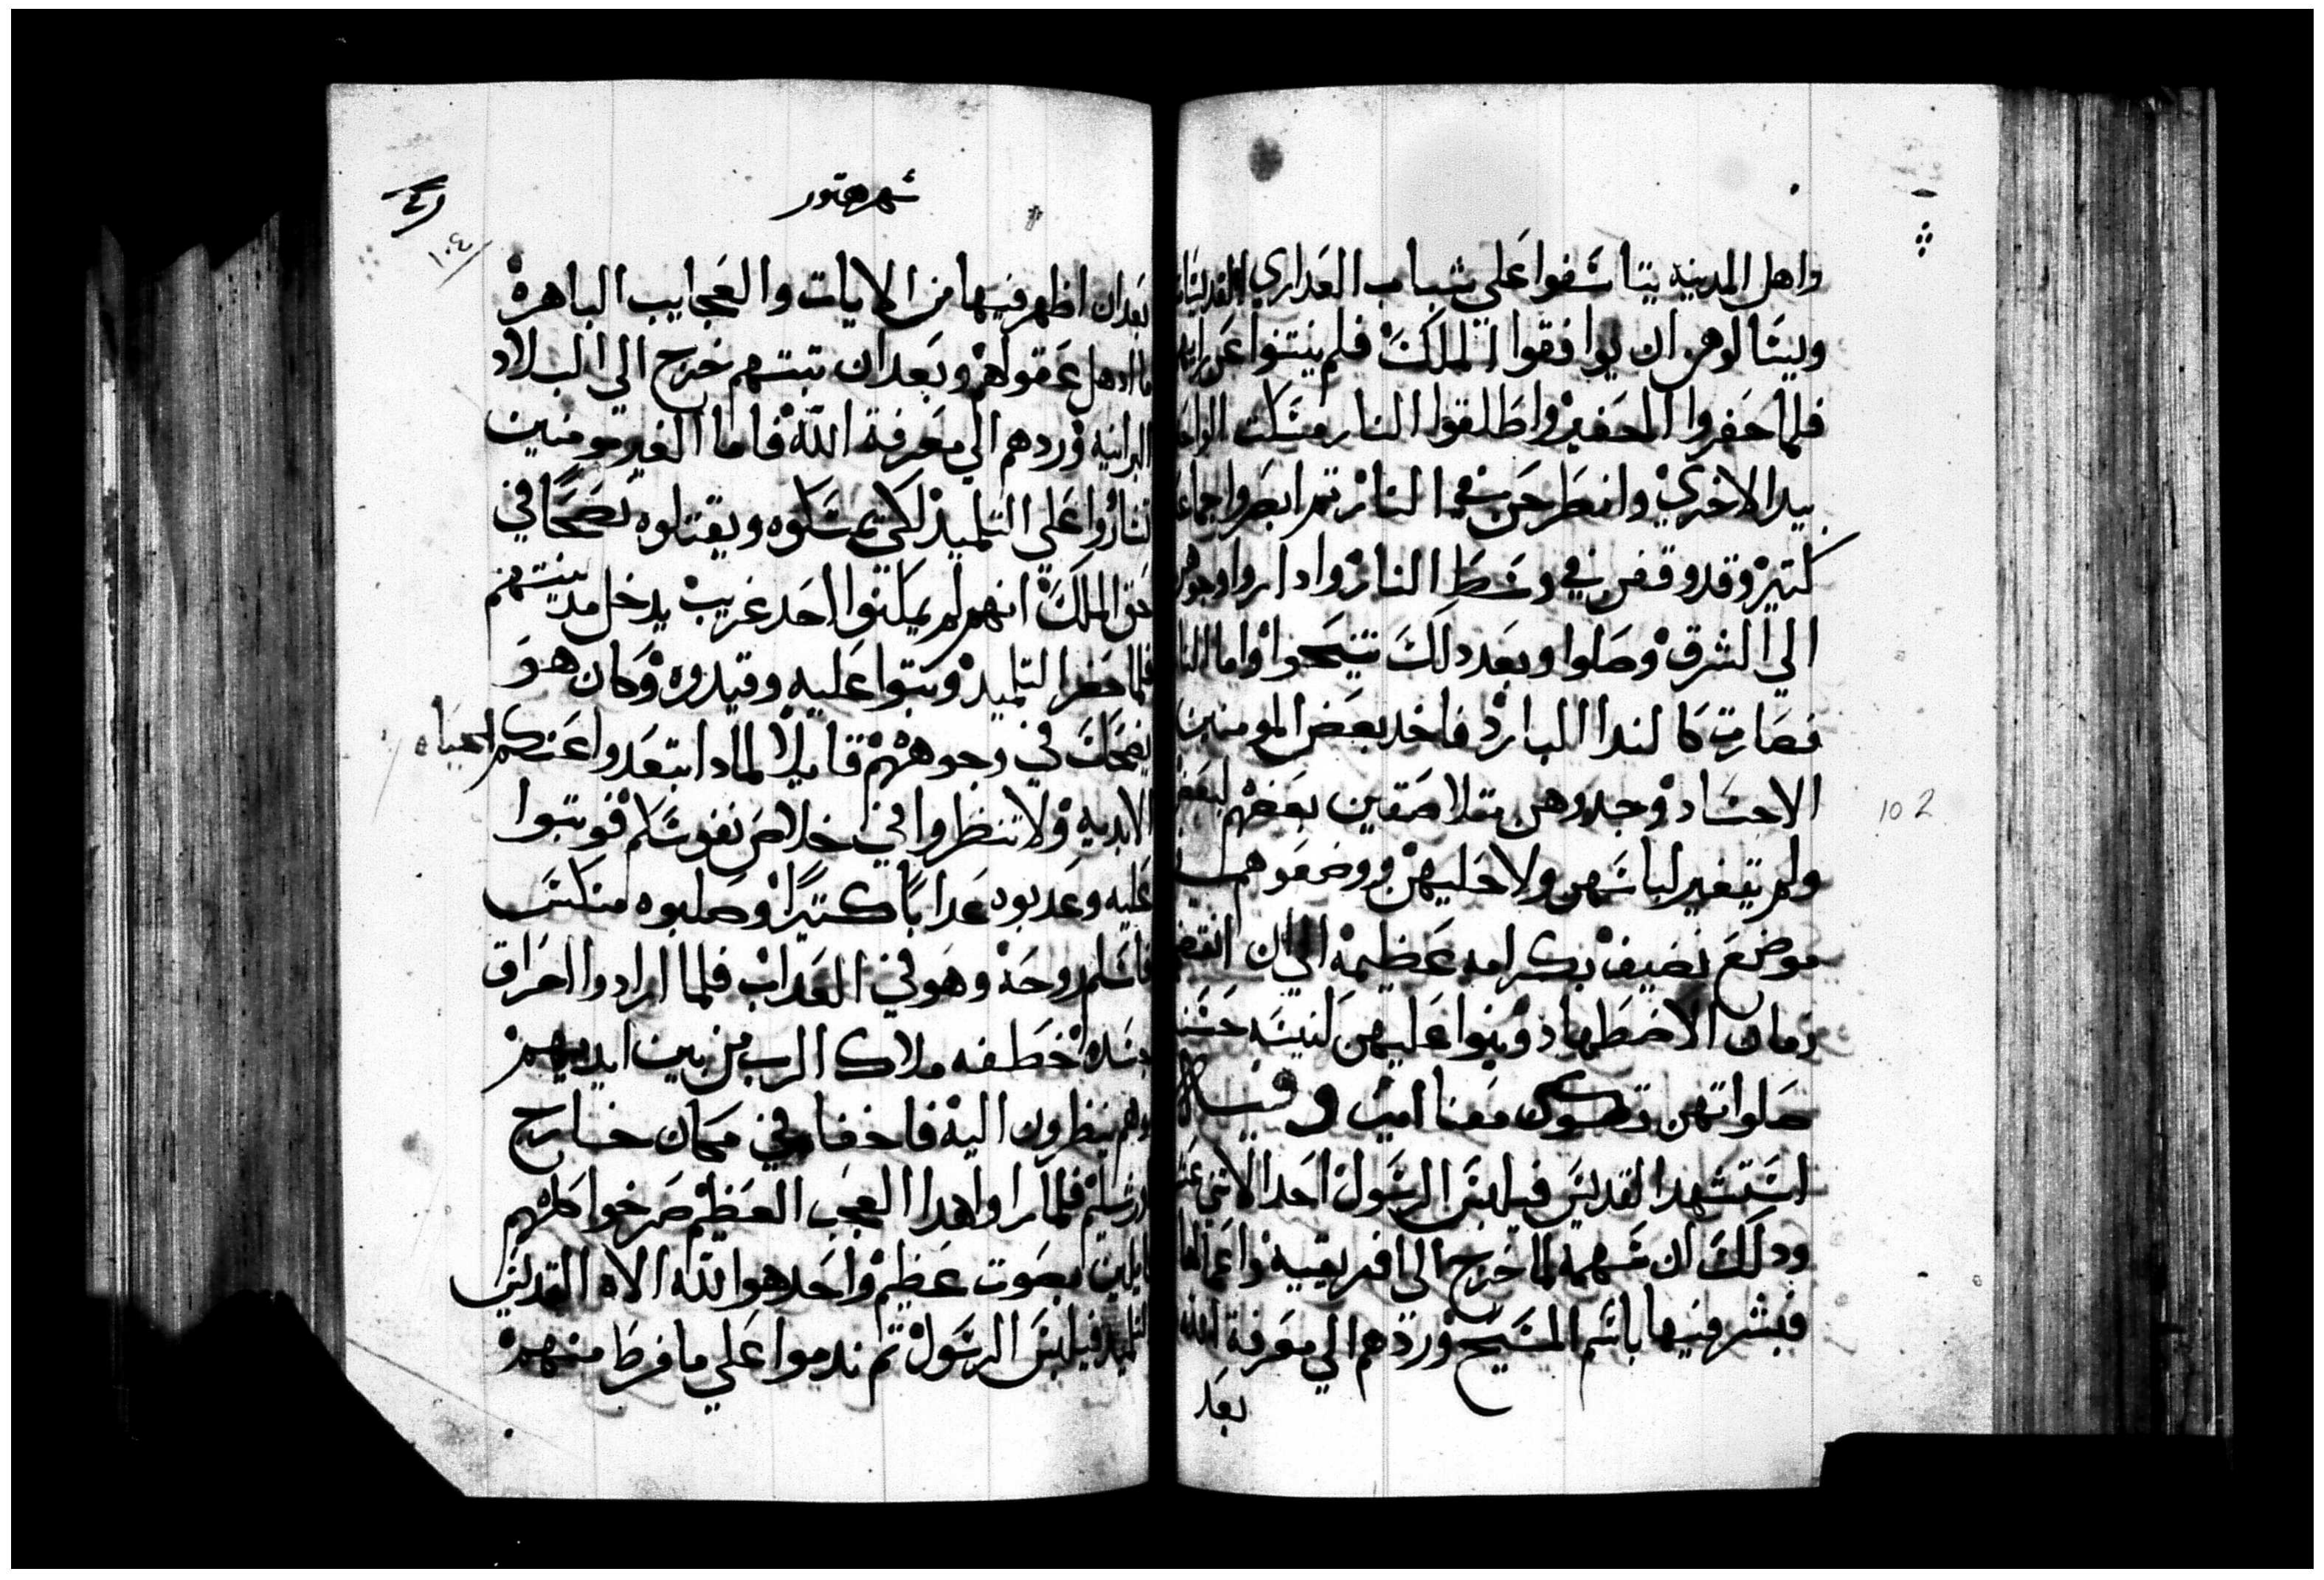 واهل المدينه يتاسفوا علي شباب العداري
ويسالوهن ان يوافقوا الملك فلم ينتنوا عن
فلما حفروا الحفير واطلقوا النار مسكت
بيد الاخري وانطرحن في النار تم ابصروا جماعه
كتير وقد وقفن في وسط النار واداروا وجوههن
الي الشرق وصلوا وبعد دلك تنيحوا واما النار
فصارت كالندا البارد فاخد بعض المومنين
الاجساد وجدوهن متلاصقين بعضهم لبعض
ولم يتغير لباسهن ولا حليهن ووضعوهم
موضع نضيف بكرامه عظيمه الي ان انقضي
زمان الاضطهاد وبنوا عليهن كنيسه حسنه
صلواتهن تكون معنا امين وفيه
استشهد القديس فيلبس الرسول احد الاتني عشر
ودلك ان سهمه لما خرج الي افريقيه واعمالها
فبشر فيها باسم المسيح وردهم الي معرفة الله
بعد
102
شهر هتور
١٠٤
بعد ان اظهر فيها من الايات والعجايب الباهره
ما ادهل عقولهم وبعد ان تبتهم خرج الي البلاد
البرانيه وردهم الي معرفة الله فاما الغير مومنين
علي التلميد لكي يمسكوه ويقتلوه
الملك انهم لم يمكنوا احد غريب يدخل مدينتهم
فلما حضر التلميد وتبوا عليه وقيدوه وكان هو
يضحك في وجوههم قايلا لمادا تبعدوا عنكم الحياه
الابديه ولا تنظروا في خلاص نفوسكم فوتبوا
عليه وعدبوه عدابا كتيرا وصلبوه منكس
فاسلم روحه وهو في العداب فلما ارادوا احراق
جسده اخطفه ملاك الرب من بين ايديهم
وهم ينظرون اليه فاخفاه في مكان خارج
فلما راوا هدا العجب العظيم صرخوا كلهم
قايلين بصوت عظيم واحد هو الله الاه القديس
التلميد فيلبس الرسول تم ندموا علي ما فرط منهم